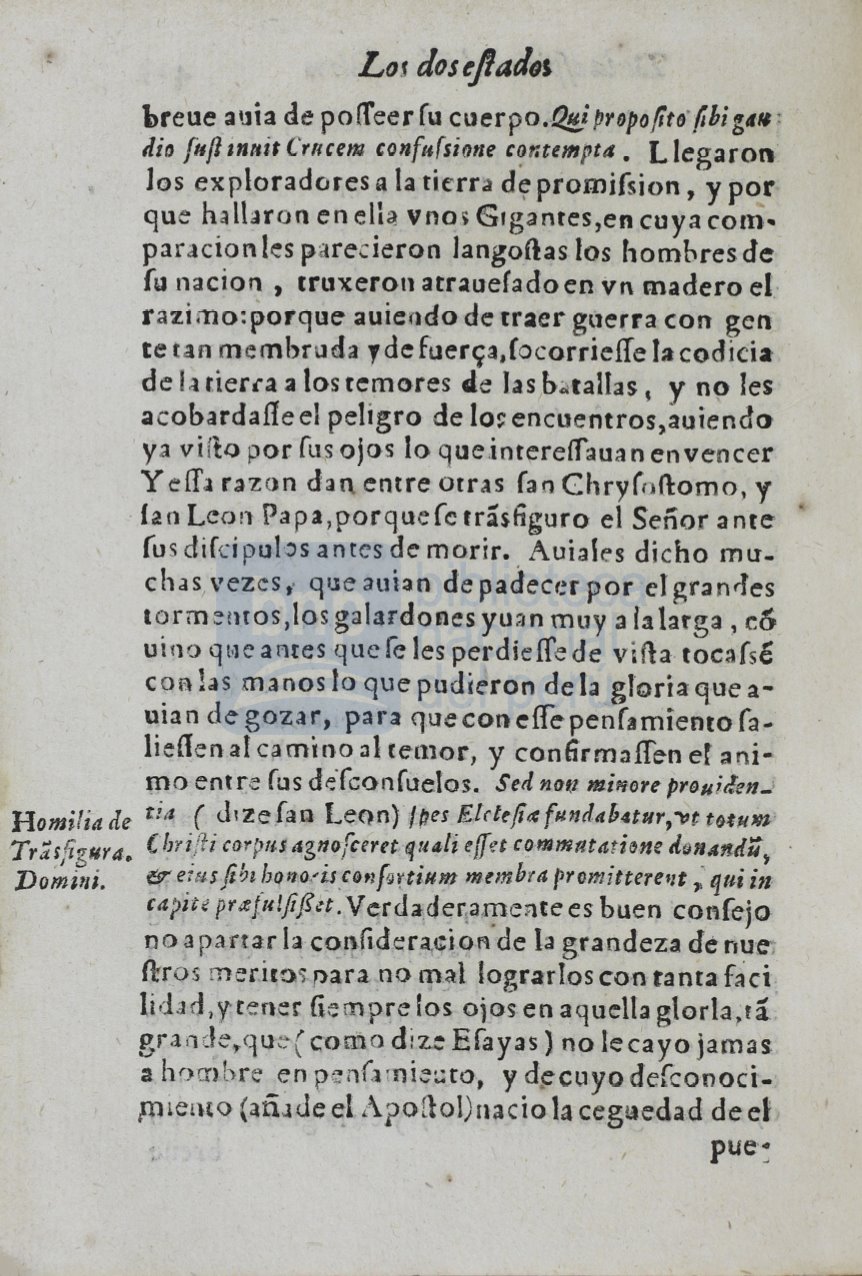 Los dos eſtados
breue auia de poſſeer ſu cuerpo. Qui propoſito ſibi gau
dio ſuſtinuit Crucem confuſsione contempta. Llegaron
los exploradores a la tierra de promiſsion, y por
que hallaron en ella vnos Gigantes, en cuya com-
paracion les parecieron langoſtas los hombres de
ſu nacion, truxeron atraueſado en vn madero el
razimo: porque auiendo de traer guerra con gen
te tan membruda y de fuerça, ſocorrieſſe la codicia
de la tierra a los temores de las batallas, y no les
acobardaſſe el peligro de los encuentros, auiendo
ya viſto por ſus ojos lo que intereſſauan en vencer
Y eſſa razon dan entre otras ſan Chryſoſtomo, y
ſan Leon Papa, porque ſe trãsfiguro el Señor ante
ſus diſcipulos antes de morir. Auiales dicho mu-
chas vezes, que auian de padecer por el grandes
tormentos, los galardones yuan muy a la larga, cõ
uino que antes que ſe les perdieſſe de viſta tocaſsẽ
con las manos lo que pudieron de la gloria que a-
uian de gozar, para que con eſſe penſamiento ſa-
lieſſen al camino al temor, y confirmaſſen el ani-
mo entre ſus deſconſuelos. Sed non minore prouiden-
tia (dize ſan Leon) ſpes Eleleſiæ fundabatur, vt totum
Chriſti corpus agnoſceret quali eſſet commutatione donandũ,
& eius ſibi honoris conſortium membra promitterent, qui in
capite præfulſiſſet. Verdaderamente es buen conſejo
no apartar la conſideracion de la grandeza de nue
ſtros meritos para no mal lograrlos con tanta faci
lidad, y tener ſiempre los ojos en aquella glorla, tã
grande, que (como dize Eſayas) no le cayo jamas
a hombre en penſamieuto, y de cuyo deſconoci-
miento (añade el Apoſtol) nacio la ceguedad de el
pue-
Homilia de
Trãsfigura.
Domini.